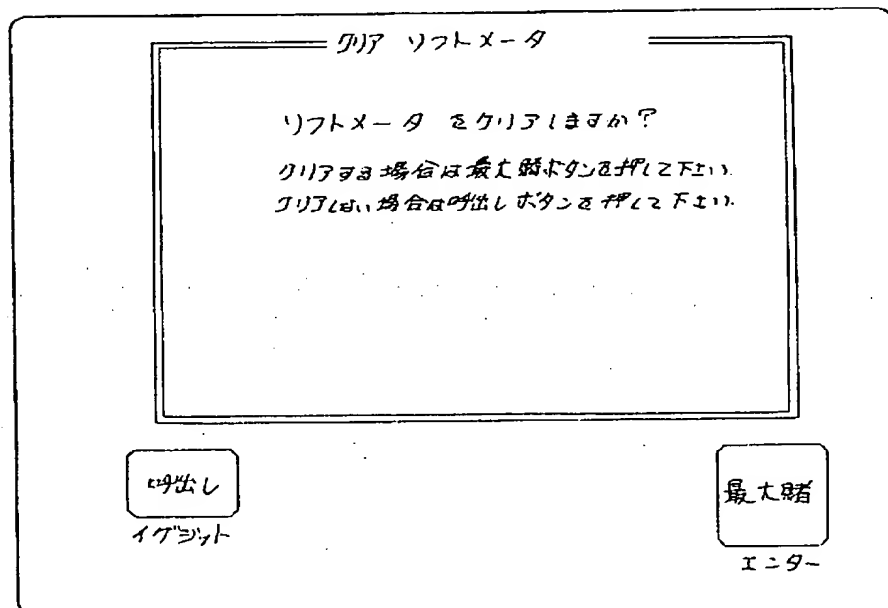 クリア ソフトメータ
ソフトメータ をクリアしますか?
クリアする場合は最大賭ボタンを押して下さい.
クリアしない場合は呼出しボタンを押して下さい.
呼出し
イグジット
最大賭
エンター